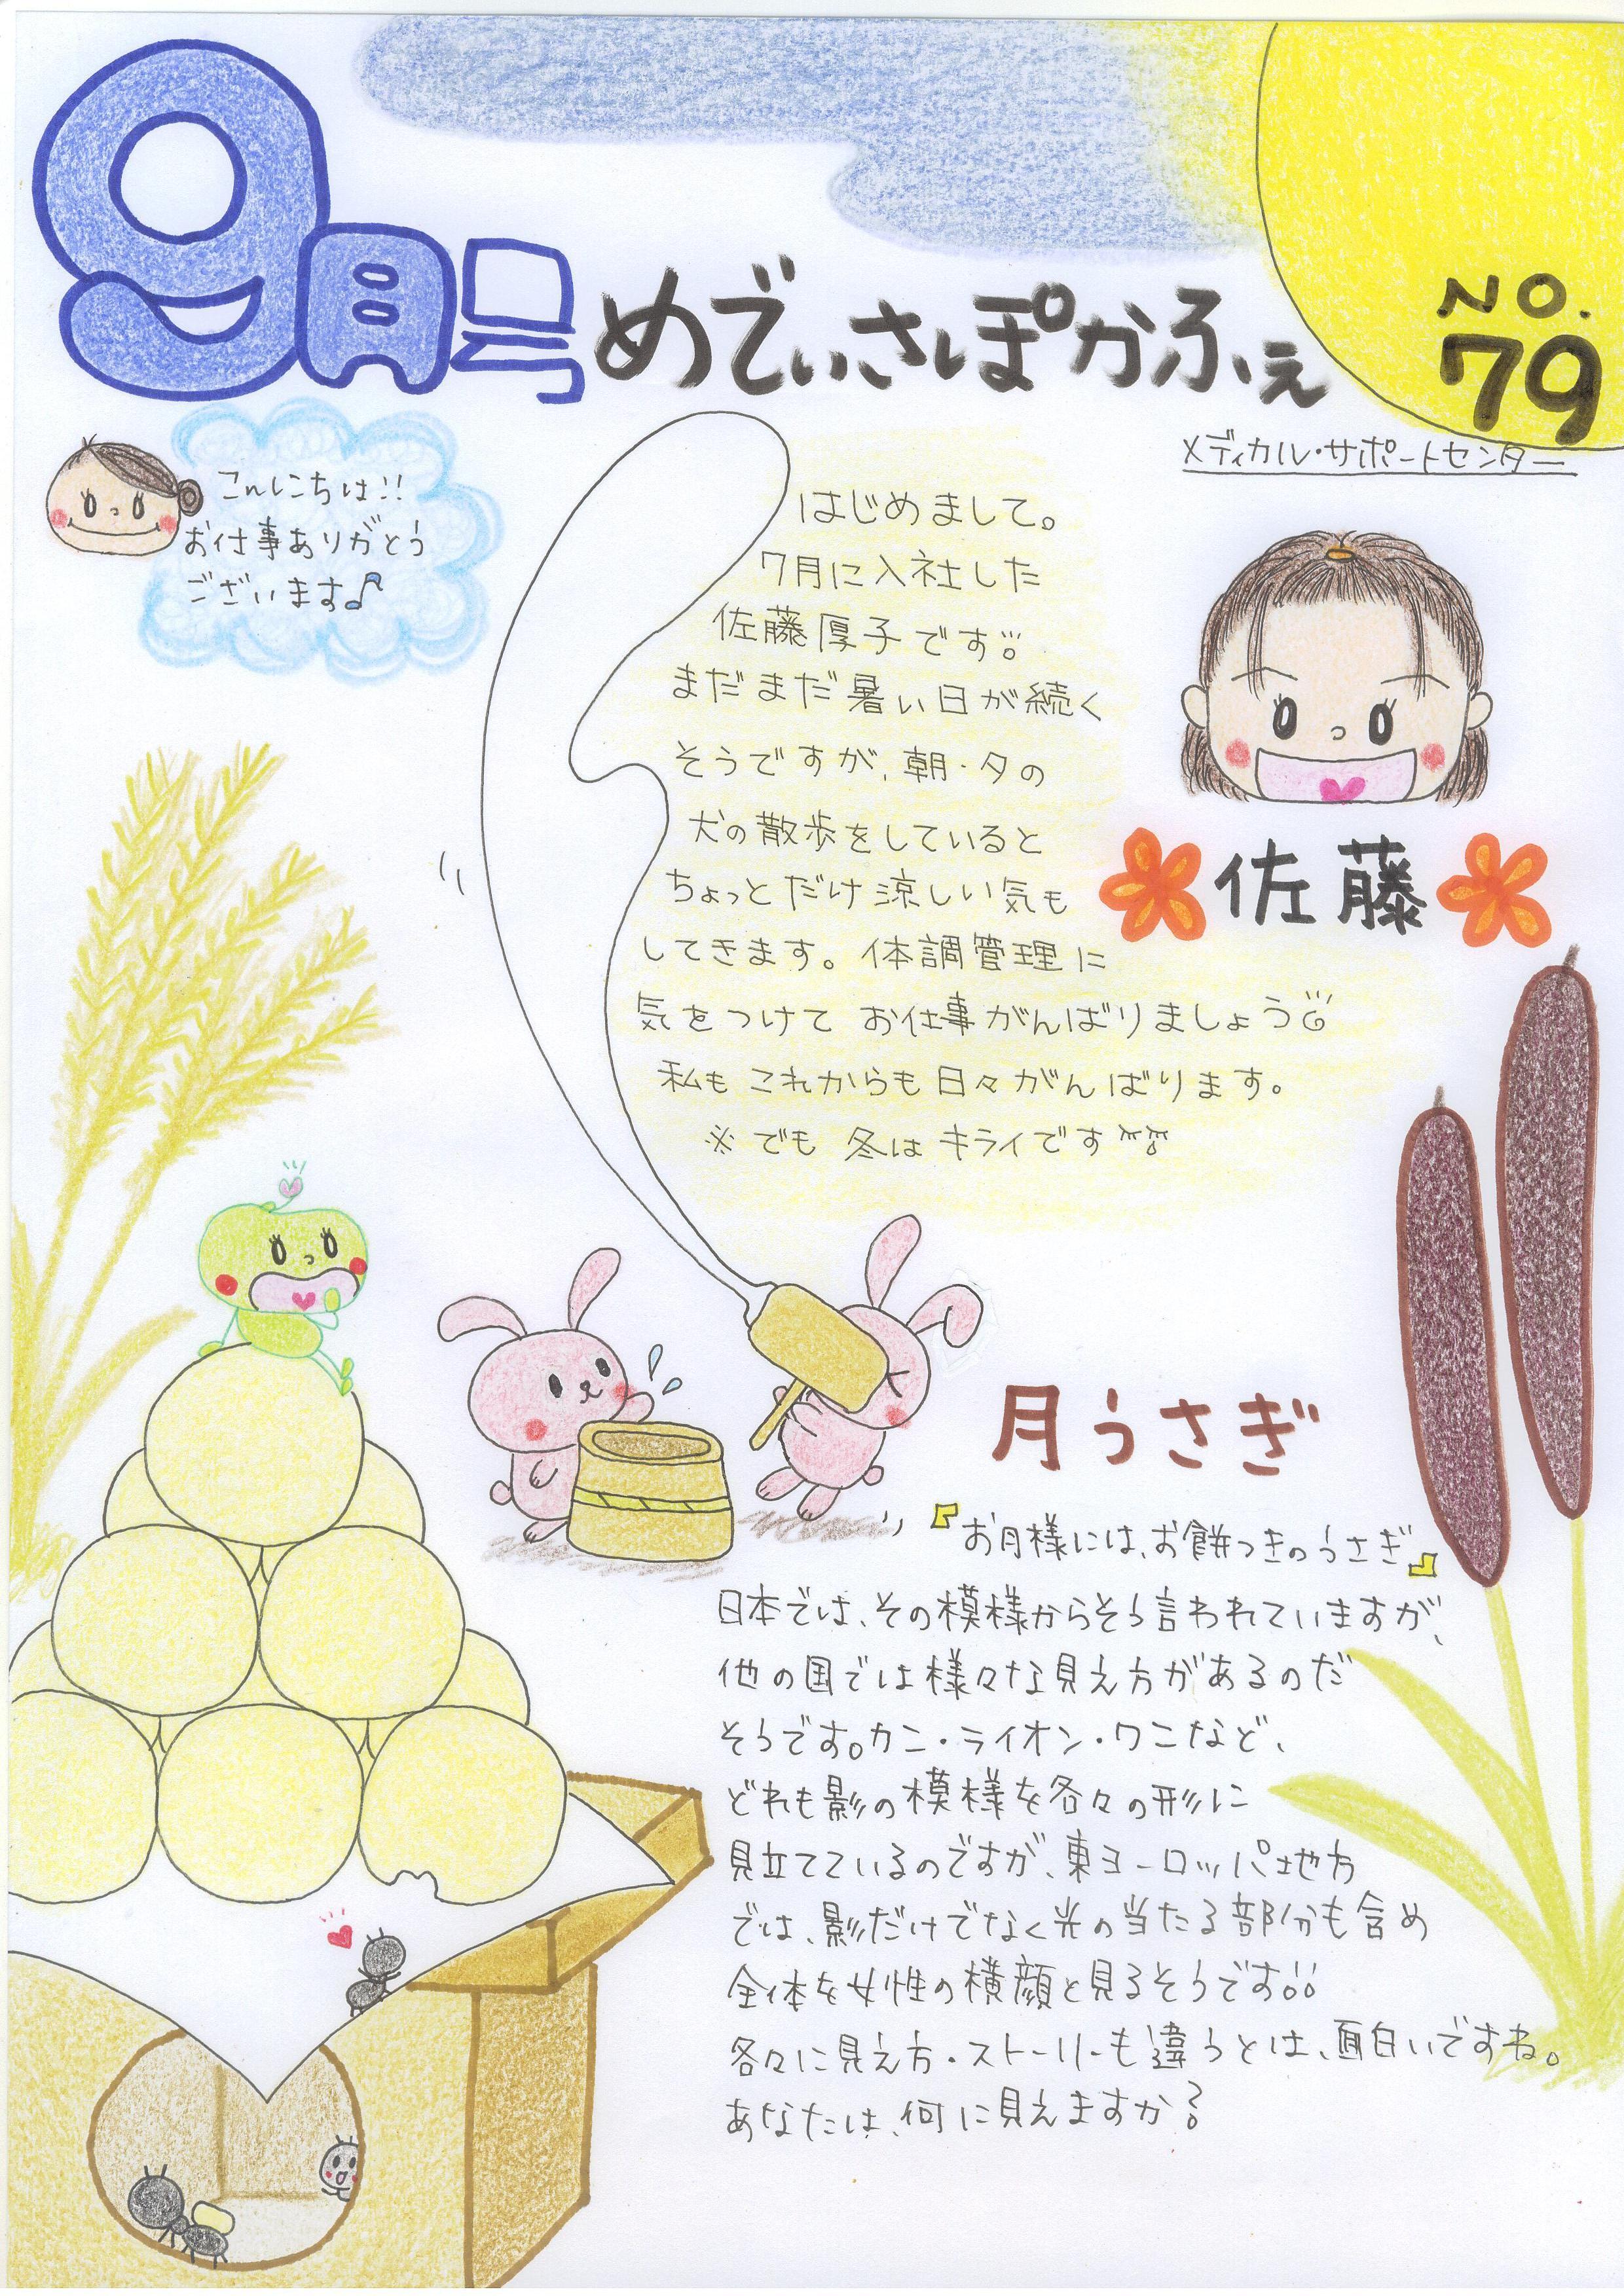 9月号 めでぃさぽかふぇ
NO.
79
メディカル・サポートセンター
こんにちは!!
お仕事ありがとう
ございます♪
はじめまして。
7月に入社した
佐藤厚子です
まだまだ暑い日が続く
そうですが、朝・夕の
犬の散歩をしていると
ちょっとだけ涼しい気も
してきます。体調管理に
気をつけて お仕事がんばりましょう
私も これからも 日々がんばります。
※でも 冬は キライです
佐藤
月うさぎ
『お月様には、お餅つきのうさぎ』
日本では、その模様からそう言われていますが、
他の国では様々な見え方があるのだ
そうです。カニ・ライオン・ワニなど、
どれも影の模様を各々の形に
見立てているのですが、東ヨーロッパ地方
では、影だけでなく光の当たる部分も含め
全体を女性の横顔と見るそうです
各々に見え方・ストーリーも違うとは、面白いですね。
あなたは、何に見えますか?